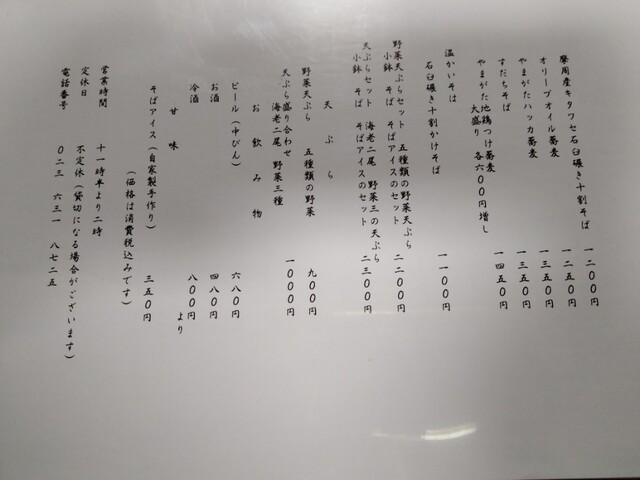 摩周産キタワセ石臼碾き十割そば 一二〇〇円
オリーブオイル蕎麦 一二五〇円
やまがたハッカ蕎麦 一三五〇円
すだちそば 一三五〇円
やまがた地鶏つけ蕎麦 一四五〇円
大盛り 各六〇〇円増し
温かいそば
石臼碾き十割かけそば 一一〇〇円
野菜天ぷらセット 五種類の野菜天ぷら
小鉢 そば そばアイスのセット 二二〇〇円
天ぷらセット 海老二尾 野菜三の天ぷら
小鉢 そば そばアイスのセット 二三〇〇円
天ぷら
野菜天ぷら 五種類の野菜 九〇〇円
天ぷら盛り合わせ
海老二尾 野菜三種 一〇〇〇円
お飲み物
ビール（中びん） 六八〇円
お酒 四八〇円
冷酒 八〇〇円より
甘味
そばアイス（自家製手作り） 三五〇円
（価格は消費税込みです）
営業時間 十一時半より二時
定休日 不定休（貸切になる場合がございます）
電話番号 〇二三 六三一 八七二五